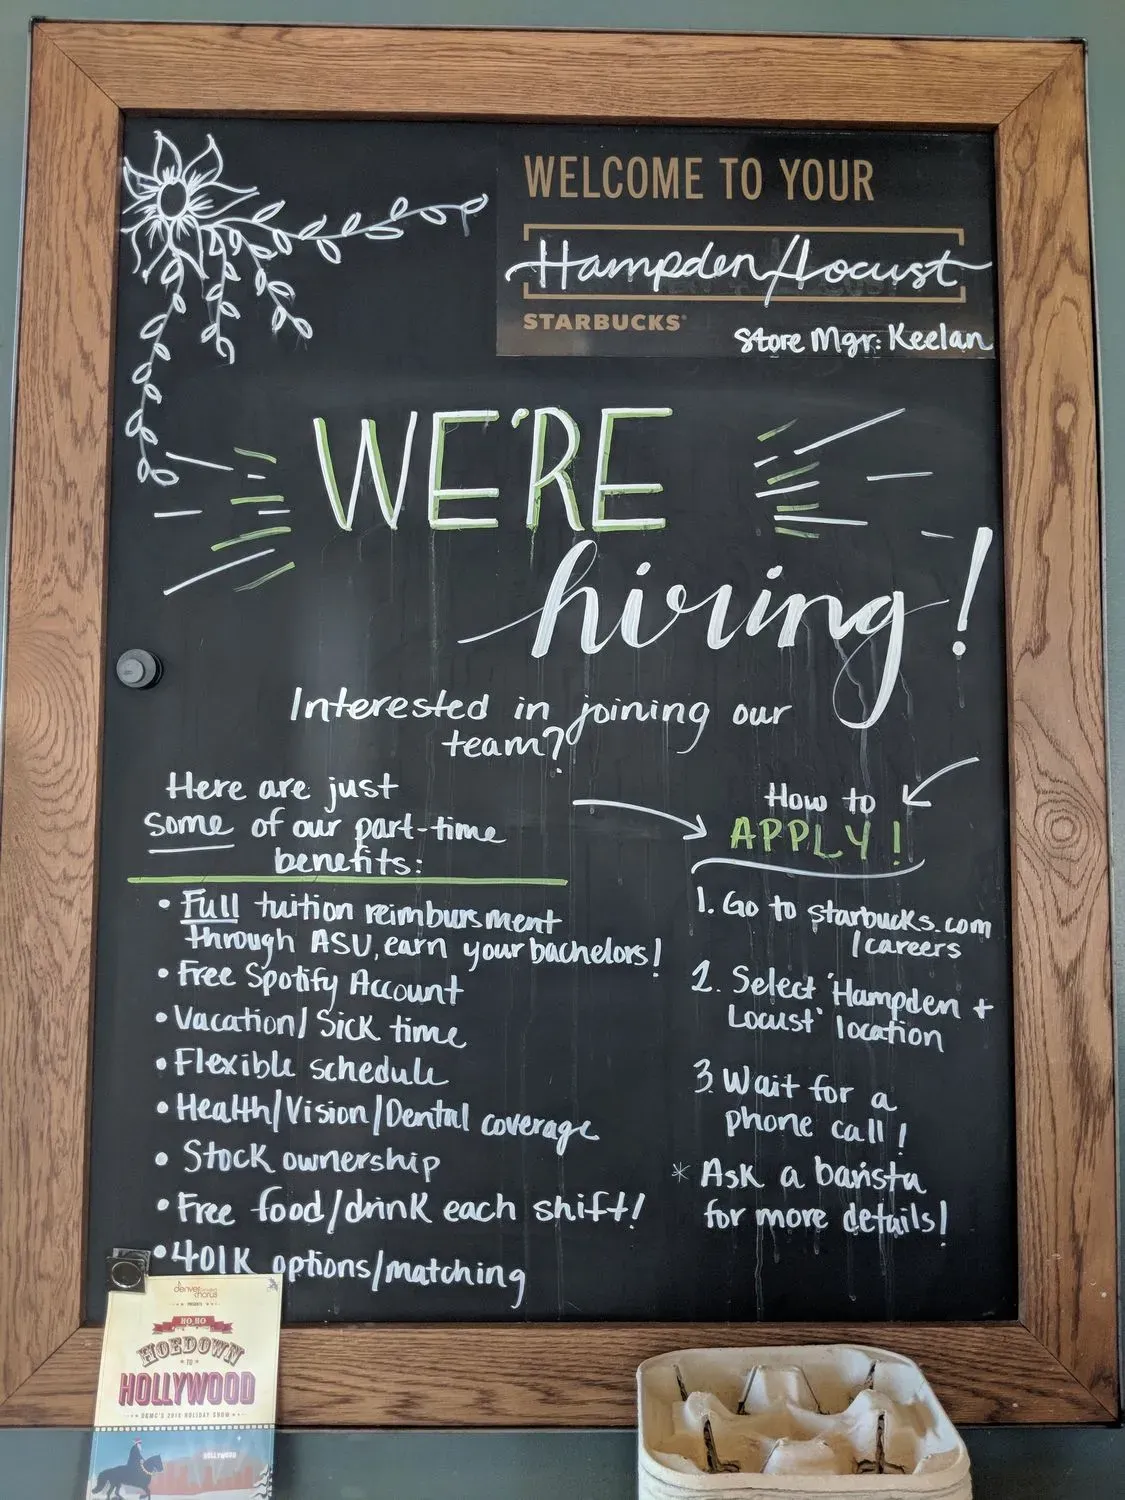 WELCOME TO YOUR
Hampden/Locust
STARBUCKS®
Store Mgr: Keelan
WE'RE
hiring!
Interested in joining our
team?
Here are just
some of our part-time
benefits:
• Full tuition reimbursment
through ASU, earn your bachelors!
• Free Spotify Account
• Vacation/Sick time
• Flexible schedule
• Health/Vision/Dental coverage
• Stock ownership
• Free food/drink each shift!
• 401K options/matching
How to
APPLY!
1. Go to starbucks.com
/careers
2. Select 'Hampden +
Locust' location
3. Wait for a
phone call!
* Ask a barista
for more details!
denver
PRESENTS
HO HO
HOEDOWN
TO
HOLLYWOOD
DGMC'S 2018 HOLIDAY SHOW
HOLLYWOOD